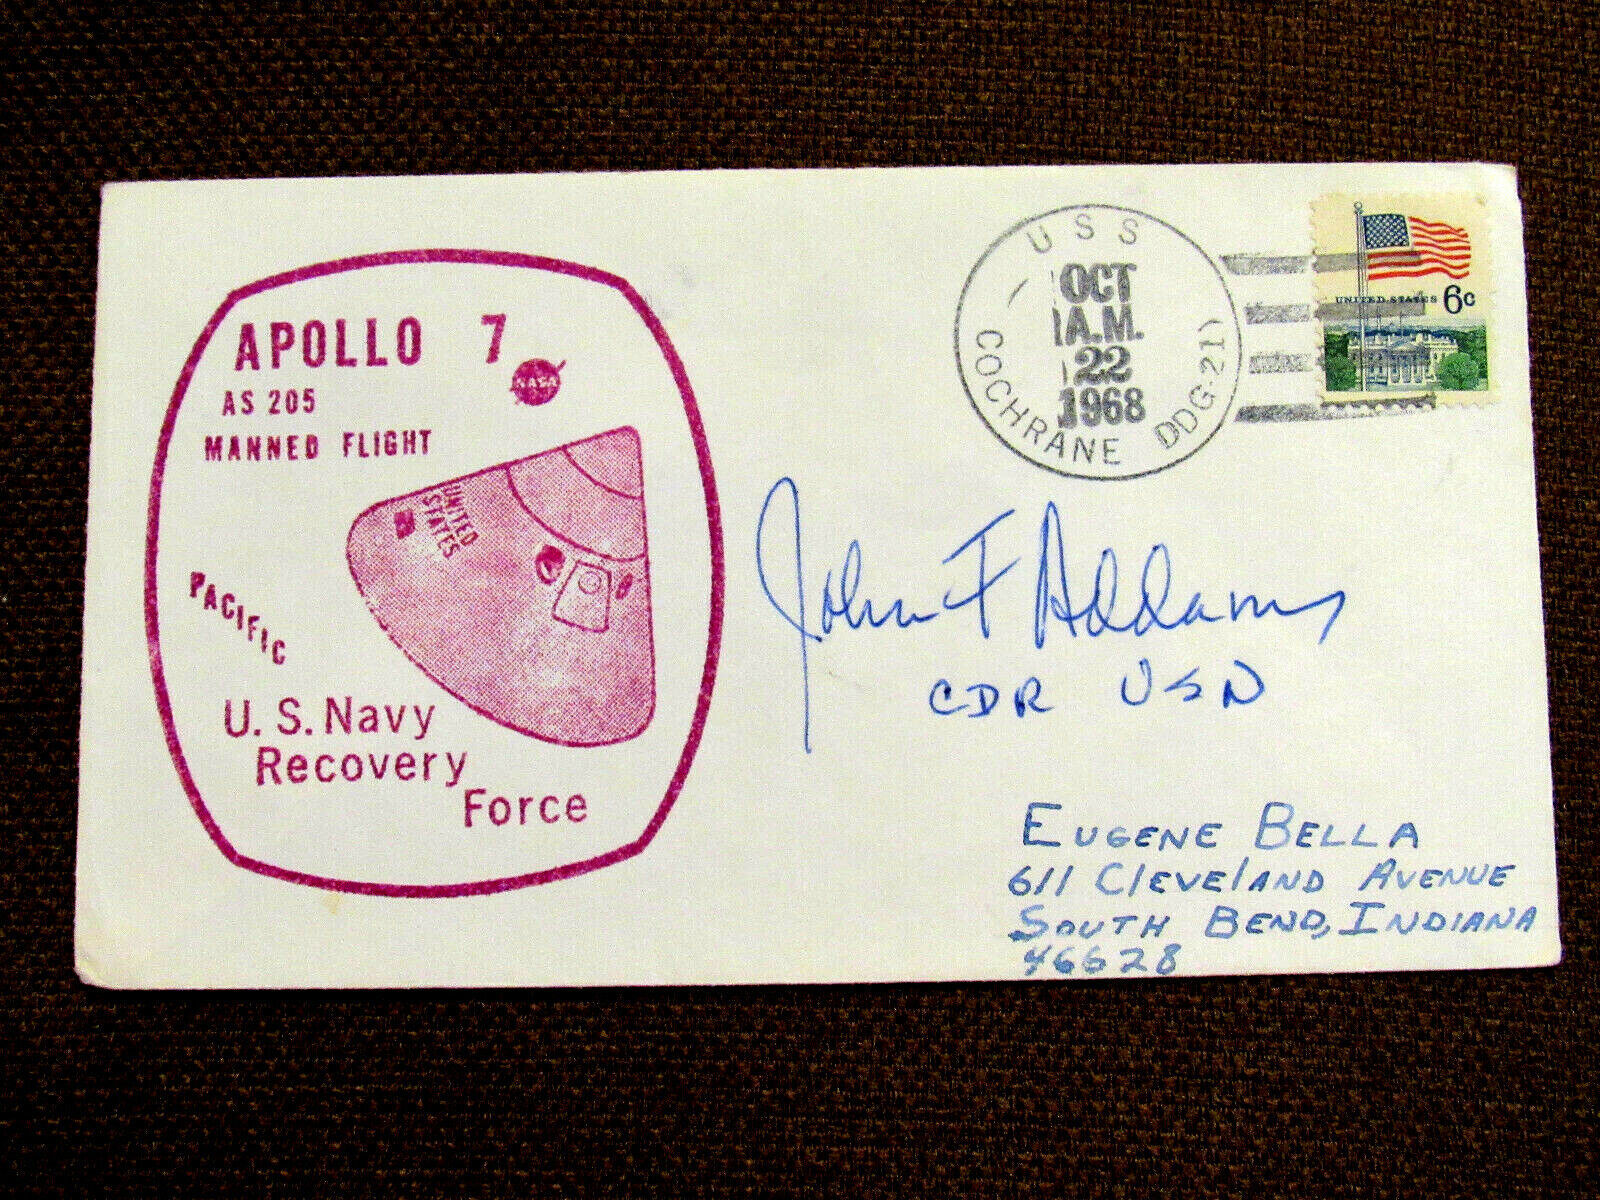 APOLLO 7
NASA
AS 205
MANNED FLIGHT
UNITED
STATES
PACIFIC
U.S. Navy
Recovery
Force
USS
OCT
A.M.
22
1968
COCHRANE DDG-21)
UNITED STATES 6c
John F Addams
CDR USN
EUGENE BELLA
611 CLEVELAND AVENUE
SOUTH BEND, INDIANA
46628